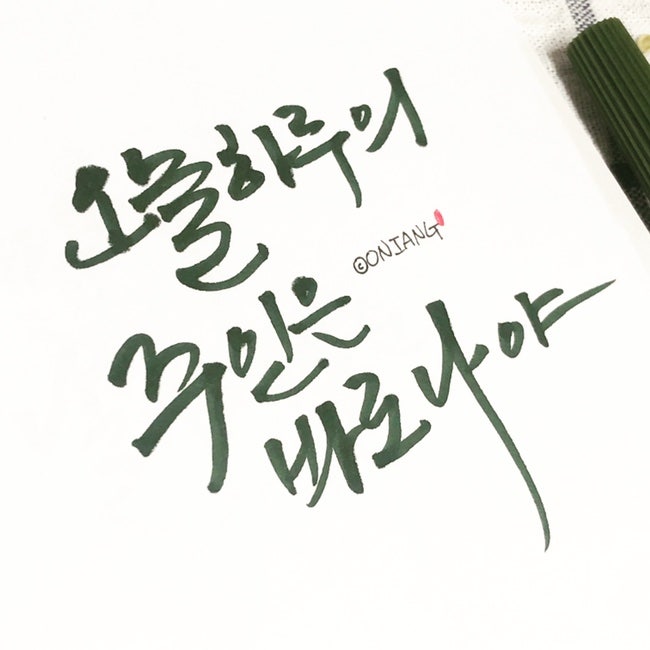 오늘하루의
©ONJANG
주인은
바로나야